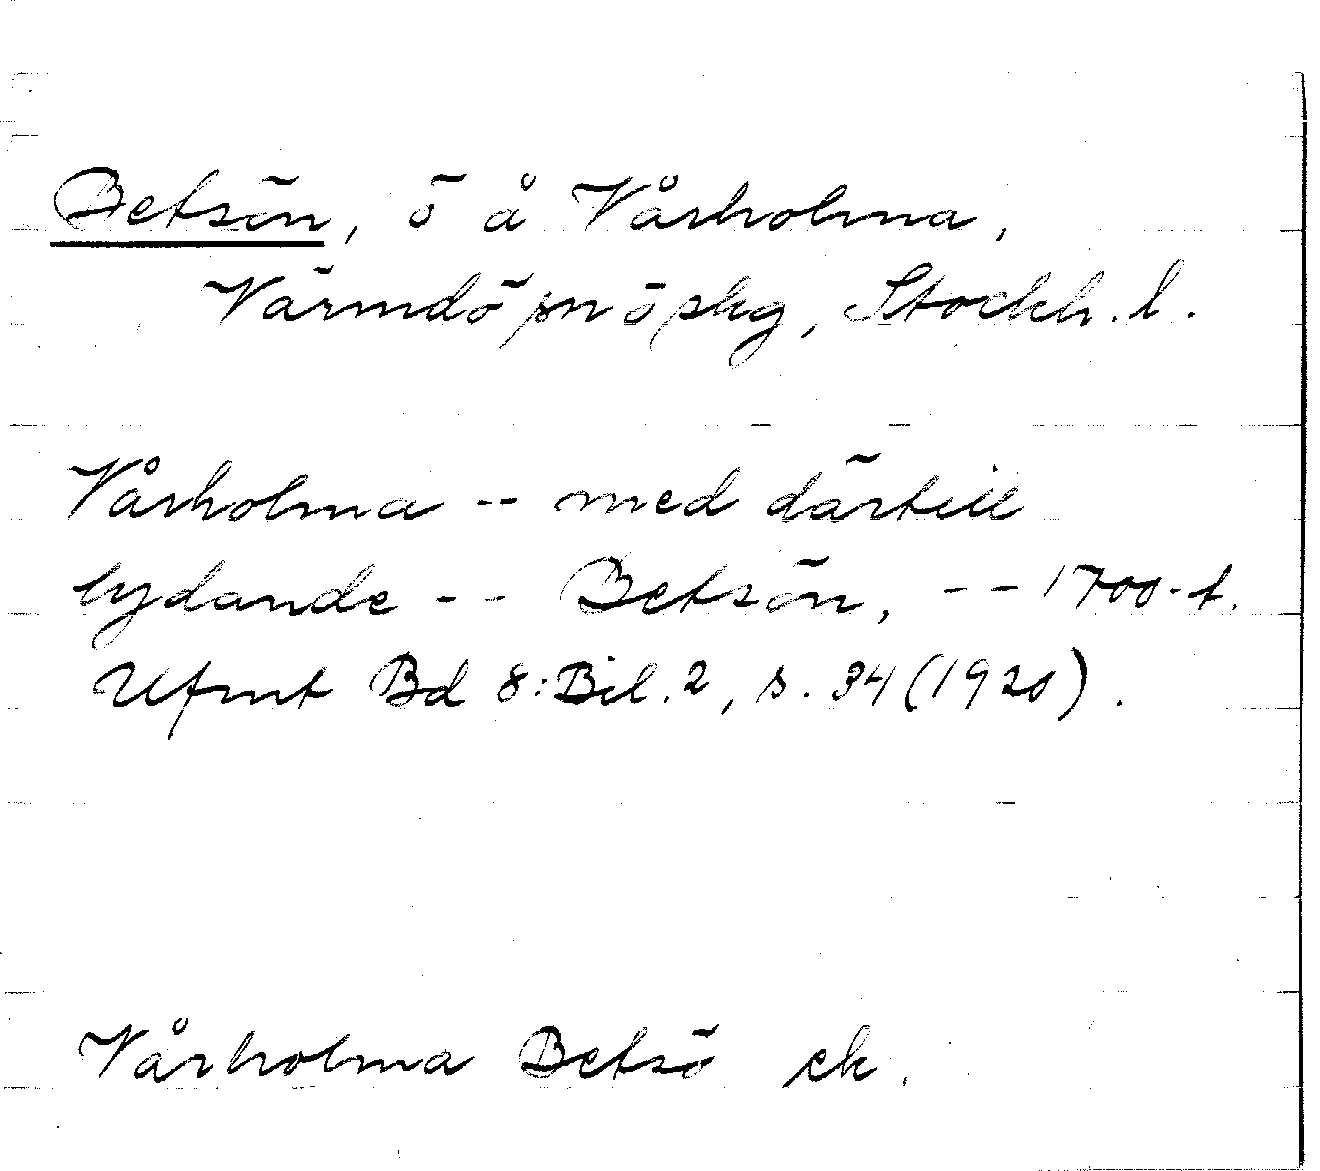 Betsön, ö å Vårholma,
Värmdö sn ö skg, Stockh. l.
Vårholma -- med därtill
lydande -- Betsön, -- 1700-t.
Ufmt Bd 8: Bil. 2, s. 34 (1920).
Vårholma Betsö ek.